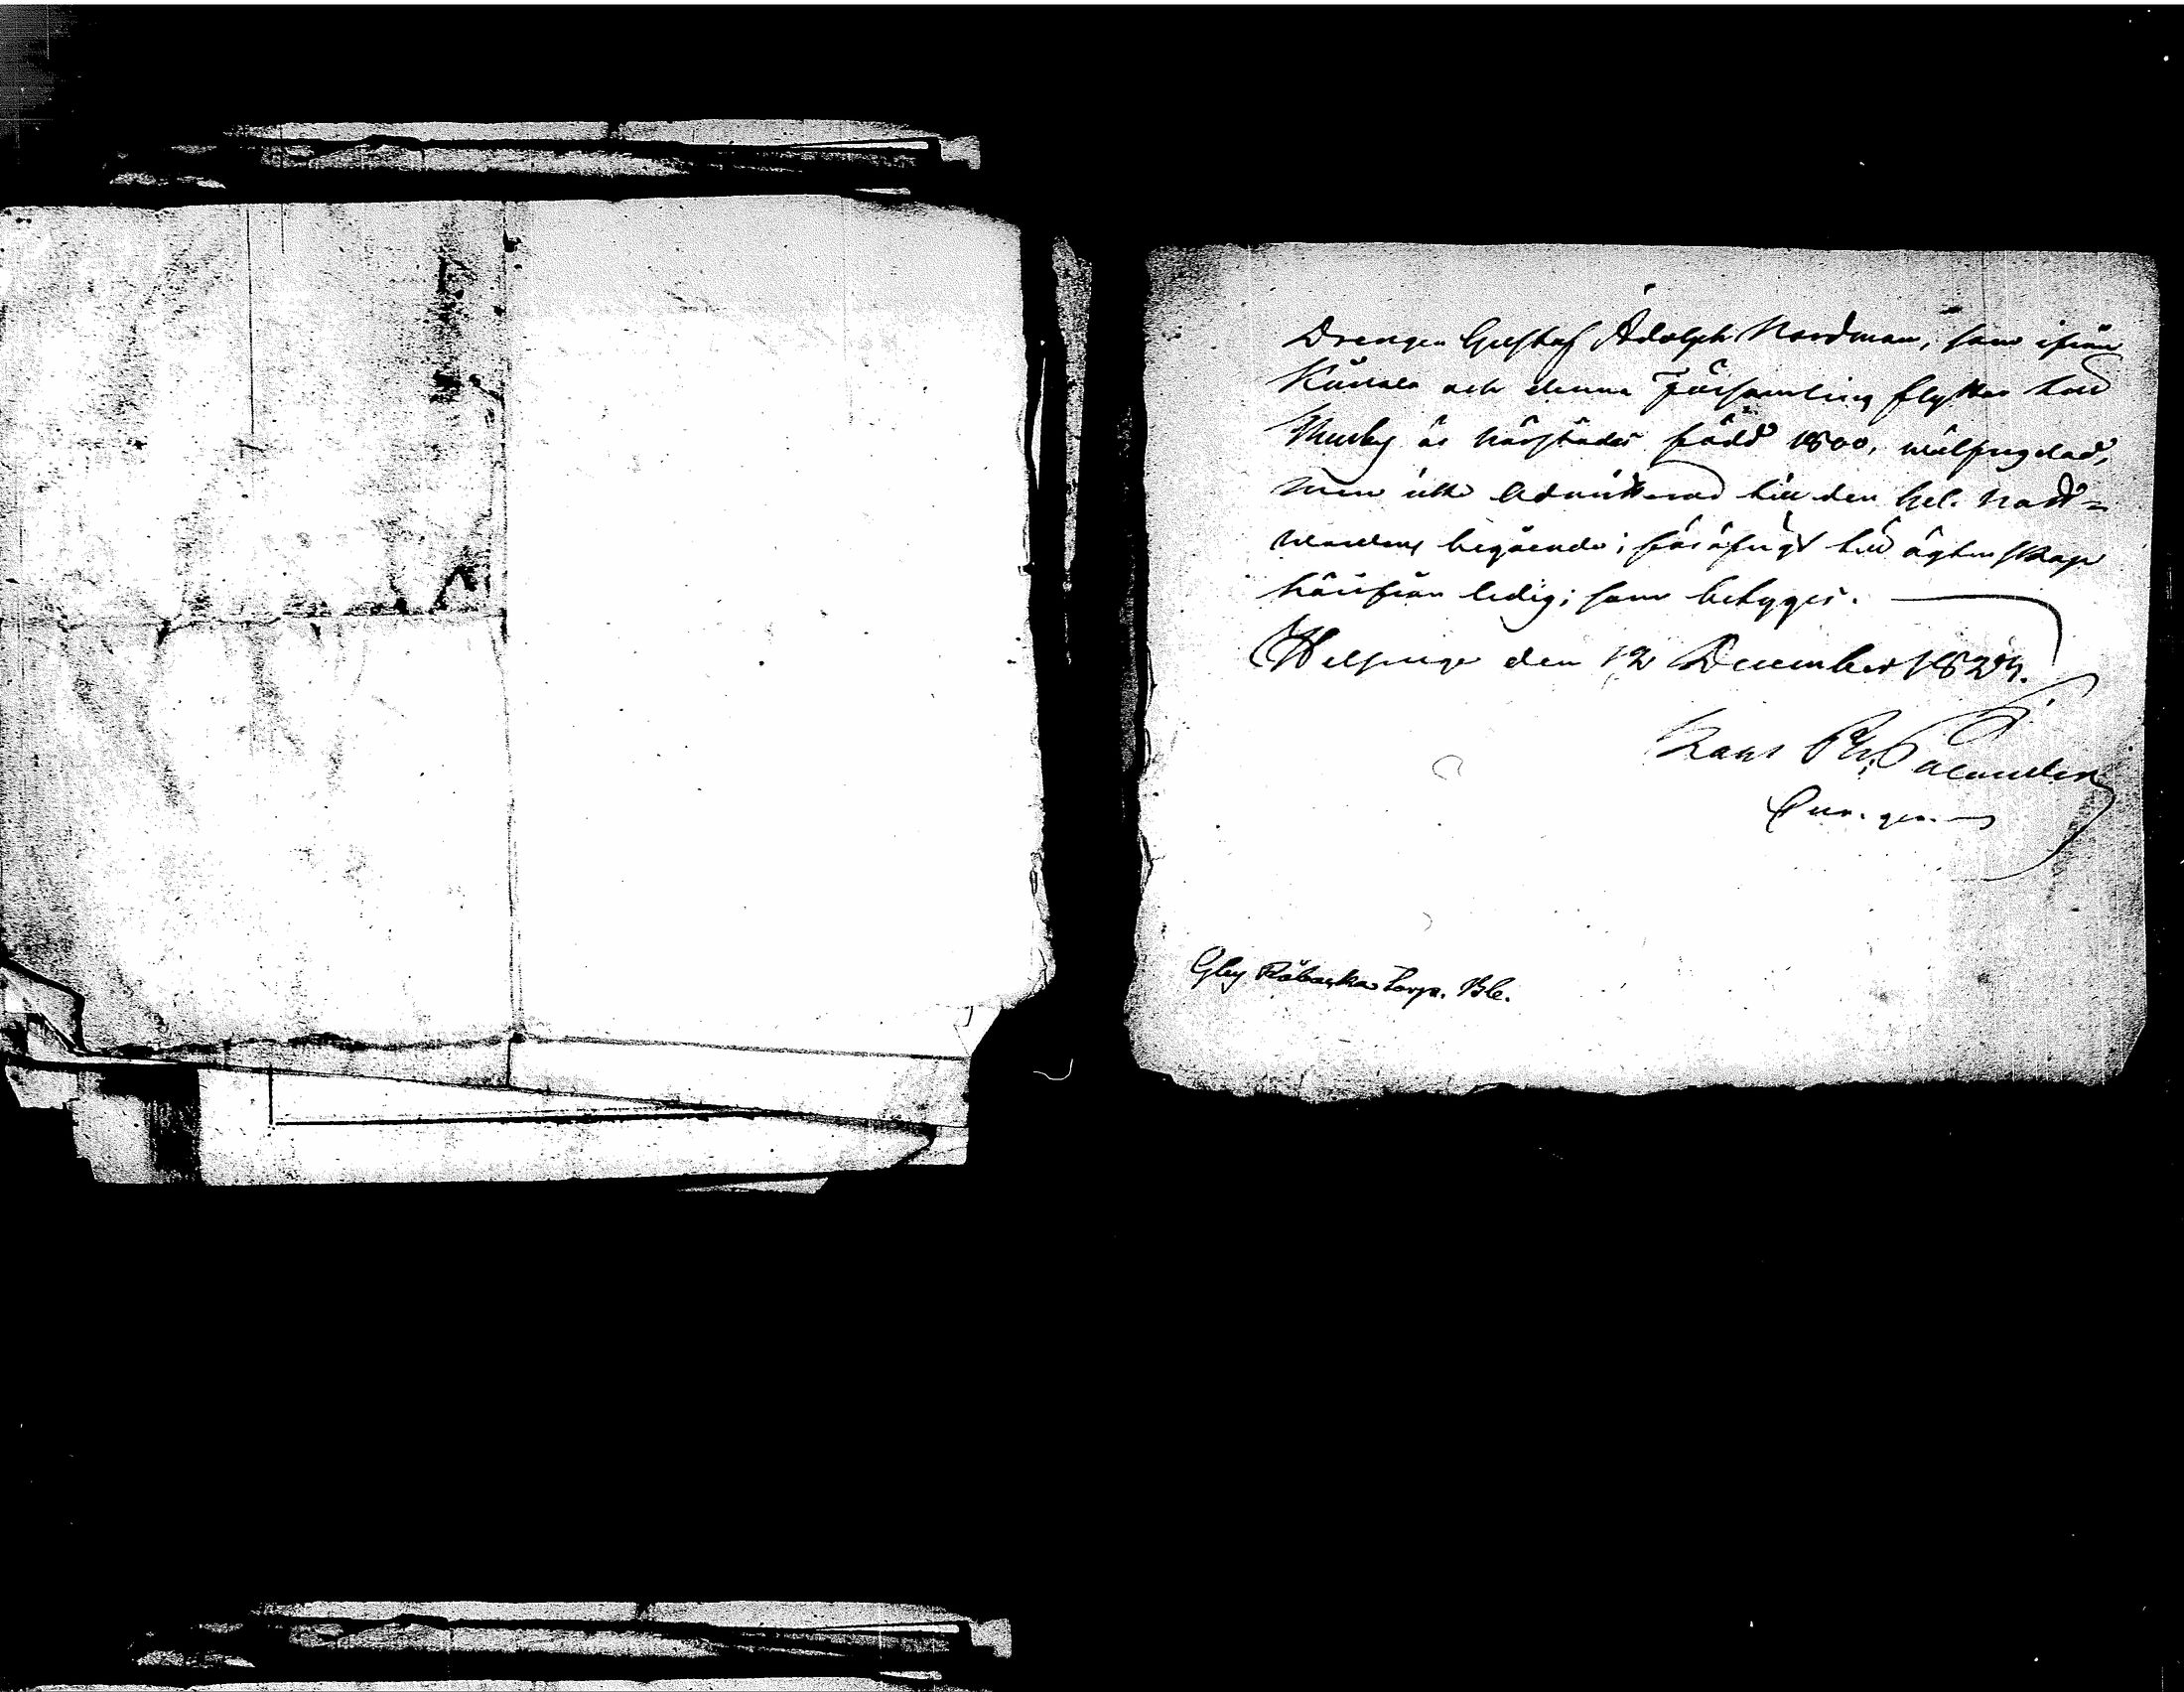 Drengen Gustaf Adolph Nordman, som ifrån
Künsala och denna Församling flyttar till
Munby är härstädes född 1800, wälfrejdad,
men icke Admitterad till den hel. Natt-
wardens begående; för öfrigt till ägtenskap
härifrån ledig; som betyges.
Helsinge den 12 December 1824.
Palander
Gby Råbacka Torp.